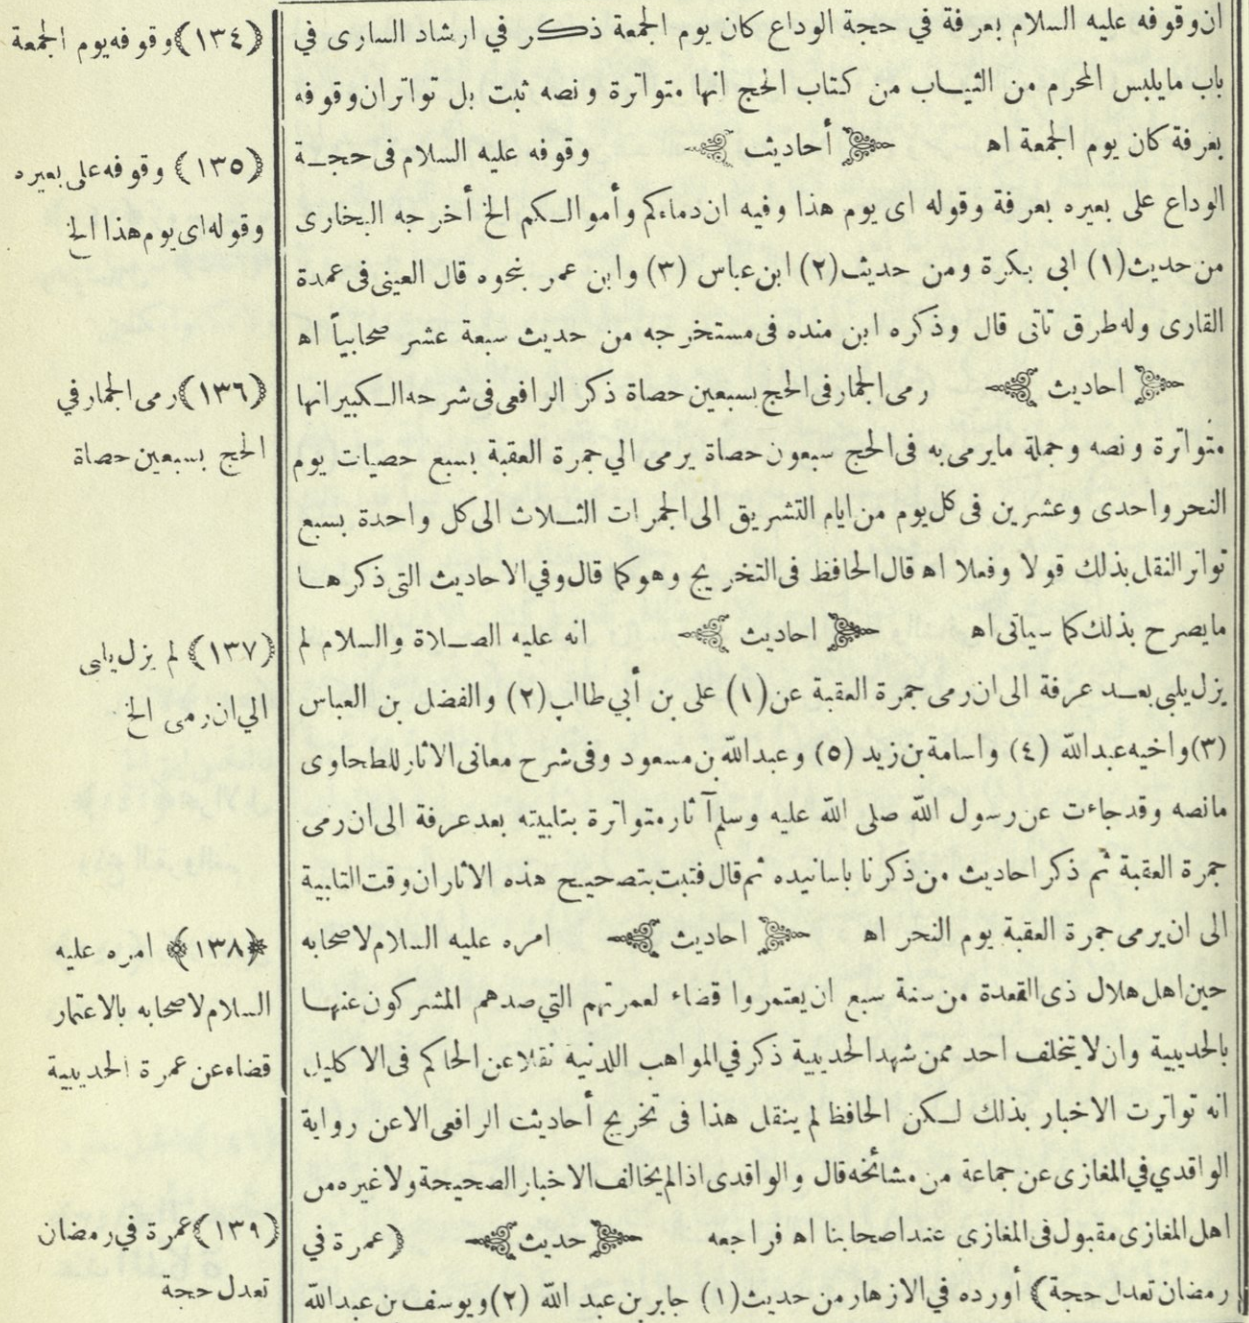 ان وقوفه عليه السلام بعرفة في حجة الوداع كان يوم الجمعة ذكر في ارشاد السارى في
باب ما يلبس المحرم من الثياب من كتاب الحج انها متواترة ونصه ثبت بل تواتر ان وقوفه
بعرفة كان يوم الجمعة اه ﴿أحاديث﴾ وقوفه عليه السلام فى حجة
الوداع على بعيره بعرفة وقوله اى يوم هذا وفيه ان دماءكم وأموالكم الخ أخرجه البخارى
من حديث (١) ابى بكرة ومن حديث (٢) ابن عباس (٣) وابن عمر نحوه قال العينى فى عمدة
القارى وله طرق تاتى قال وذكره ابن منده فى مستخرجه من حديث سبعة عشر صحابياً اه
﴿احاديث﴾ رمى الجمار فى الحج بسبعين حصاة ذكر الرافعى فى شرحه الكبير انها
متواترة ونصه وجملة ما يرمى به فى الحج سبعون حصاة يرمى الي جمرة العقبة بسبع حصيات يوم
النحر واحدى وعشرين فى كل يوم من ايام التشريق الى الجمرات الثلاث الى كل واحدة بسبع
تواتر النقل بذلك قولا وفعلا اه قال الحافظ فى التخريج وهو كما قال وفي الاحاديث التى ذكرها
ما يصرح بذلك كما سياتى اه ﴿احاديث﴾ انه عليه الصلاة والسلام لم
يزل يلبى بعد عرفة الى ان رمى جمرة العقبة عن (١) على بن أبي طالب (٢) والفضل بن العباس
(٣) واخيه عبد الله (٤) واسامة بن زيد (٥) وعبد الله بن مسعود وفى شرح معانى الاثار للطحاوى
ما نصه وقد جاءت عن رسول الله صلى الله عليه وسلم آثار متواترة بتلبيته بعد عرفة الى ان رمى
جمرة العقبة ثم ذكر احاديث من ذكرنا باسانيده ثم قال فثبت بتصحيح هذه الاثار ان وقت التلبية
الى ان يرمى جمرة العقبة يوم النحر اه ﴿احاديث﴾ امره عليه السلام لاصحابه
حين اهل هلال ذى القعدة من سنة سبع ان يعتمروا قضاء لعمرتهم التي صدهم المشركون عنها
بالحديبية وان لا يتخلف احد ممن شهد الحديبية ذكر في المواهب اللدنية نقلا عن الحاكم فى الاكليل
انه تواترت الاخبار بذلك لكن الحافظ لم ينقل هذا فى تخريج أحاديث الرافعى الا عن رواية
الواقدي في المغازى عن جماعة من مشائخه قال والواقدى اذا لم يخالف الاخبار الصحيحة ولا غيره من
اهل المغازى مقبول فى المغازى عند اصحابنا اه فراجعه ﴿حديث﴾ (عمرة في
رمضان تعدل حجة) أورده في الازهار من حديث (١) جابر بن عبد الله (٢) ويوسف بن عبد الله
(١٣٤) وقوفه يوم الجمعة
(١٣٥) وقوفه على بعيره
وقوله اى يوم هذا الخ
(١٣٦) رمى الجمار في
الحج بسبعين حصاة
(١٣٧) لم يزل يلبى
الي ان رمى الخ
﴿١٣٨﴾ امره عليه
السلام لاصحابه بالاعتمار
قضاء عن عمرة الحديبية
(١٣٩) عمرة في رمضان
تعدل حجة